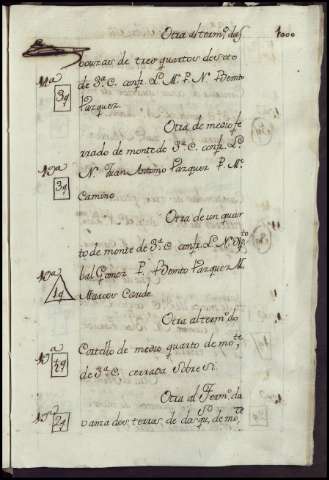 Otra al term.º das
1000
bouzas de tres quartos de
11ª
3q
de 3ª C. conf. L. M. P. N. Bento
Vazquez
Otra de medio fe
rrado de monte de 3ª C. conf. L.
13ª
3q
N. Juan Antonio Vazquez P. M.
Camino
Otra de un quar
to de monte de 3ª C. conf. L. N.
bal Gomez P. Bento Vazquez M.
1q
Marcos Conde
Otra al term.º do
Castelo de medio quarto de mo.te
½q
de 3ª C. cerrada sobre si
Otra al Term.º da
2q
vama dos terras de de mo.te